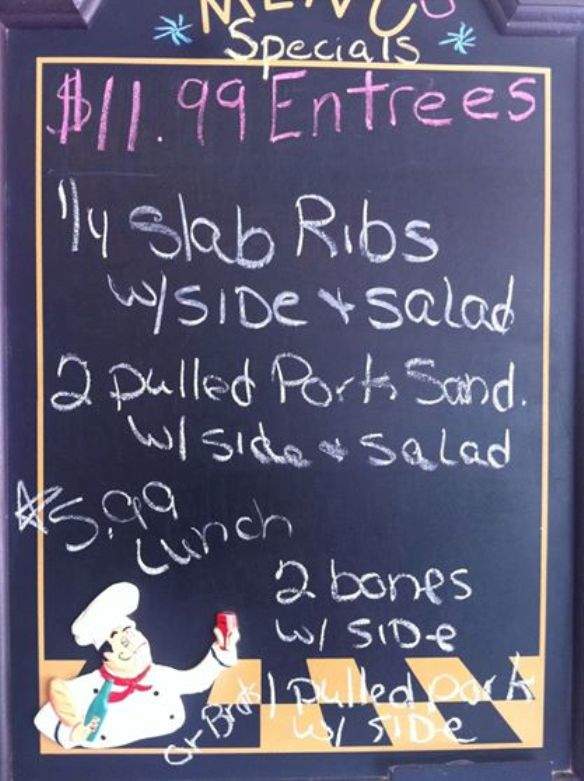 MENU
Specials
$11.99 Entrees
1/4 Slab Ribs
w/SIDe + Salad
2 Pulled Pork Sand.
w/ Side + Salad
$5.99
Lunch
2 bones
w/ SIDe
or Brats 1 Pulled Pork
w/ SIDe